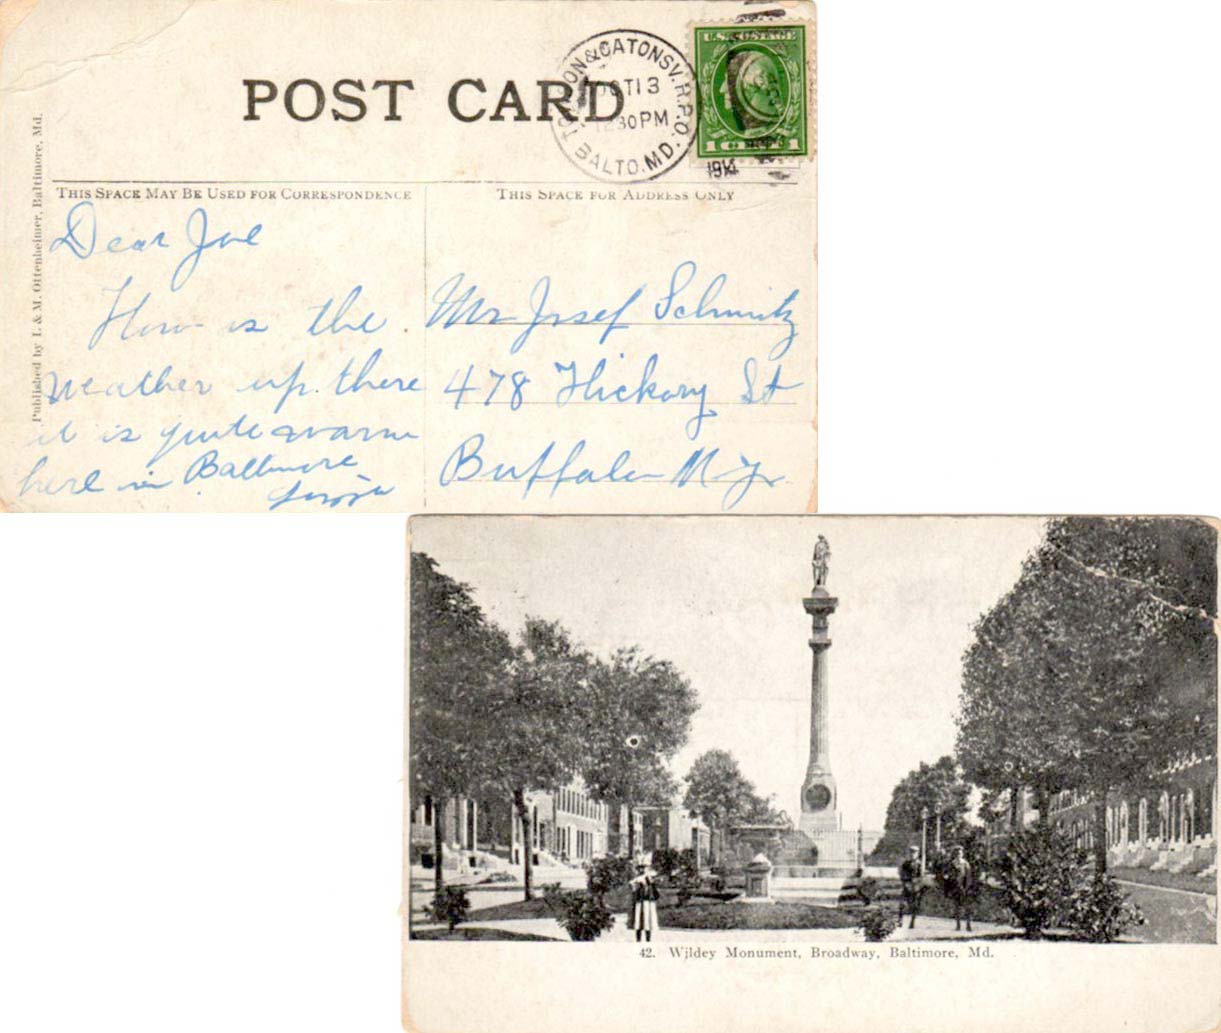 POST CARD
TOWSON & CATONSV. R.P.O.
OCT 13
12 30 PM
1914
BALTO. MD.
U.S. POSTAGE
1 CENT 1
Published by I. & M. Ottenheimer, Baltimore, Md.
THIS SPACE MAY BE USED FOR CORRESPONDENCE
THIS SPACE FOR ADDRESS ONLY
Dear Joe
How is the
weather up there
it is quite warm
here in Baltimore
Mr Josef Schmitz
478 Hickory St
Buffalo N.Y.
42. Wildey Monument, Broadway, Baltimore, Md.